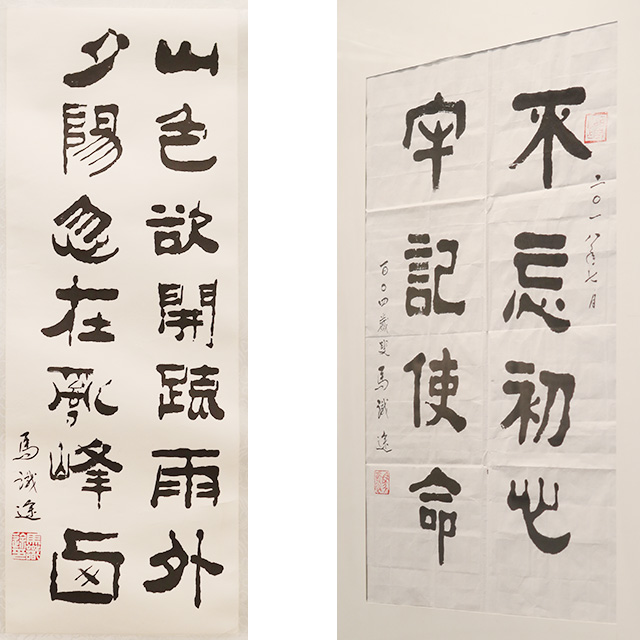 山色欲開疏雨外
夕陽忽在亂峰西
馬識途
二〇一八年七月
不忘初心
牢記使命
百〇四歲叟馬識途